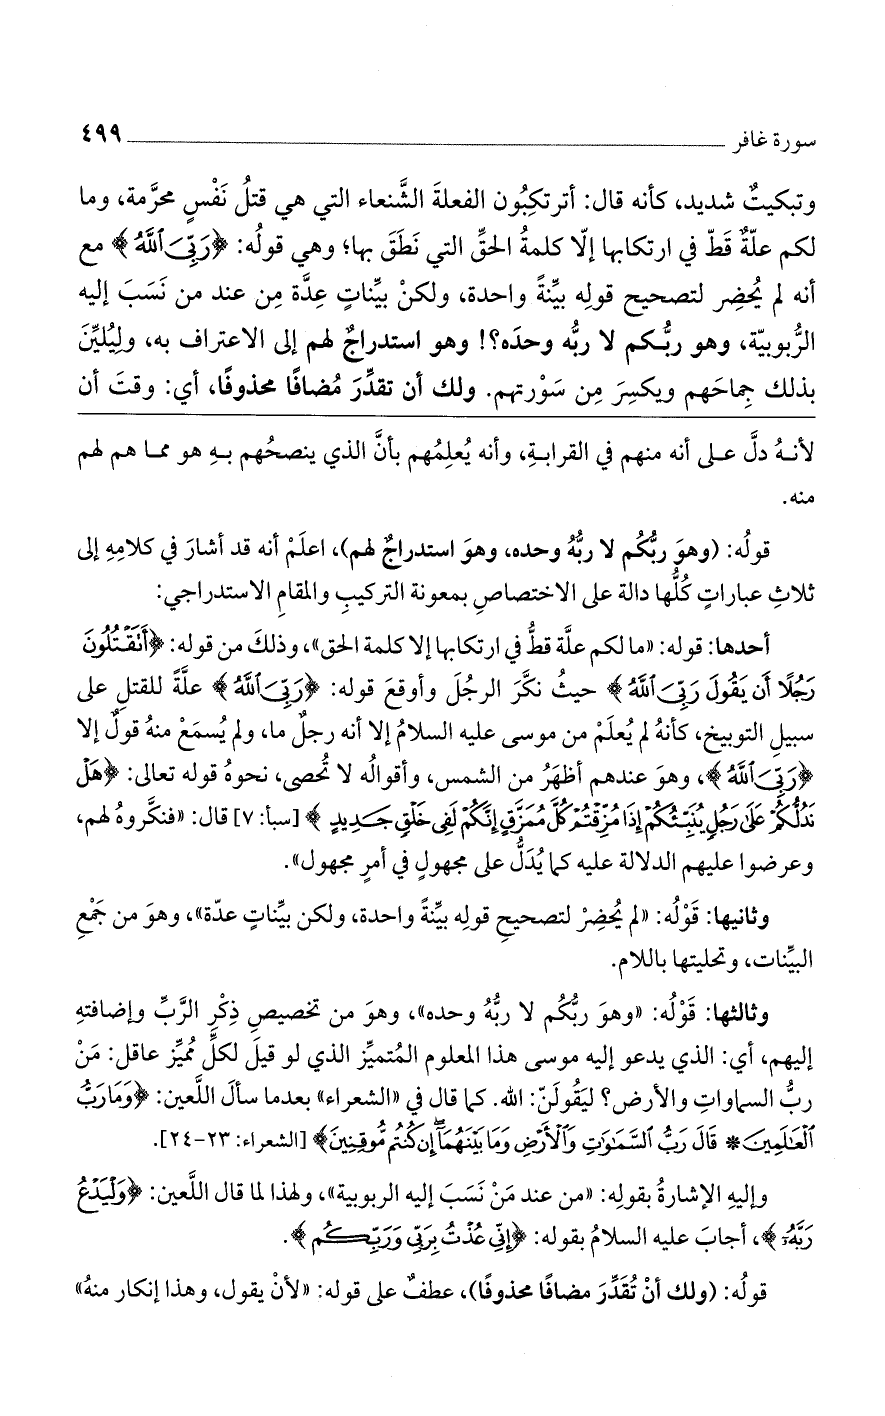 سورة غافر ٤٩٩
وتبكيتٌ شديد، كأنه قال: أترتكِبُون الفعلةَ الشَّنعاء التي هي قتلُ نَفْسٍ محرَّمة، وما
لكم علّةٌ قطّ في ارتكابها إلّا كلمةُ الحقِّ التي نَطَقَ بها؛ وهي قولُه: ﴿رَبِّىَ ٱللَّهُ﴾ مع
أنه لم يُحضِر لتصحيح قولِه بيِّنةً واحدة، ولكنْ بيِّناتٍ عِدَّة مِن عند من نَسَبَ إليه
الرُّبوبيّة، وهو ربُّكم لا ربُّه وحدَه؟! وهو استدراجٌ لهم إلى الاعتراف به، ولِيُليِّنَ
بذلك جِماحَهم ويكسِرَ مِن سَوْرتهم. ولك أن تقدِّرَ مُضافًا محذوفًا، أي: وقتَ أن
لأنهُ دلَّ على أنه منهم في القرابةِ، وأنه يُعلِمُهم بأنَّ الذي ينصحُهم بهِ هو مما هم لهم
منه.
قولُه: (وهوَ ربُّكُم لا ربُّهُ وحده، وهوَ استدراجٌ لهم)، اعلَمْ أنه قد أشارَ في كلامِهِ إلى
ثلاثِ عباراتٍ كُلُّها دالة على الاختصاصِ بمعونة التركيبِ والمقامِ الاستدراجي:
أحدها: قوله: «ما لكم علَّة قطُّ في ارتكابها إلا كلمة الحق»، وذلكَ من قوله: ﴿أَتَقْتُلُونَ
رَجُلًا أَن يَقُولَ رَبِّىَ ٱللَّهُ﴾ حيثُ نكَّرَ الرجُلَ وأوقعَ قوله: ﴿رَبِّىَ ٱللَّهُ﴾ علَّةً للقتلِ على
سبيلِ التوبيخ، كأنهُ لم يُعلَمْ من موسى عليه السلامُ إلا أنه رجلٌ ما، ولم يُسمَعْ منهُ قولٌ إلا
﴿رَبِّىَ ٱللَّهُ﴾، وهوَ عندهم أظهَرُ من الشمس، وأقوالُه لا تُحصى، نحوهُ قوله تعالى: ﴿هَلْ
نَدُلُّكُمْ عَلَىٰ رَجُلٍ يُنَبِّئُكُمْ إِذَا مُزِّقْتُمْ كُلَّ مُمَزَّقٍ إِنَّكُمْ لَفِى خَلْقٍ جَدِيدٍ﴾ [سبأ: ٧] قال: «فنكَّروهُ لهم،
وعرضوا عليهم الدلالة عليه كما يُدَلُّ على مجهولٍ في أمرٍ مجهول».
وثانيها: قَوْلُه: «لم يُحضِرْ لتصحيحِ قولِه بيِّنةً واحدة، ولكن بيِّناتٍ عدّة»، وهوَ من جَمْعِ
البيِّنات، وتحليتها باللام.
وثالثها: قَوْلُه: «وهوَ ربُّكُم لا ربُّهُ وحده»، وهوَ من تخصيصِ ذِكْرِ الرَّبِّ وإضافتهِ
إليهم، أي: الذي يدعو إليه موسى هذا المعلوم المُتميِّز الذي لو قيلَ لكلِّ مُميِّز عاقل: مَنْ
ربُّ السماواتِ والأرض؟ ليَقُولَنّ: الله. كما قال في «الشعراء» بعدما سألَ اللَّعين: ﴿وَمَا رَبُّ
ٱلْعَـٰلَمِينَ * قَالَ رَبُّ ٱلسَّمَـٰوَٰتِ وَٱلْأَرْضِ وَمَا بَيْنَهُمَآ إِن كُنتُم مُّوقِنِينَ﴾ [الشعراء: ٢٣-٢٤].
وإليهِ الإشارةُ بقولِه: «من عند مَنْ نَسَبَ إليه الربوبية»، ولهذا لما قال اللَّعين: ﴿وَلْيَدْعُ
رَبَّهُۥٓ﴾، أجابَ عليه السلامُ بقوله: ﴿إِنِّى عُذْتُ بِرَبِّى وَرَبِّكُم﴾.
قولُه: (ولك أنْ تُقَدِّرَ مضافًا محذوفًا)، عطفٌ على قوله: «لأنْ يقول، وهذا إنكار منهُ»